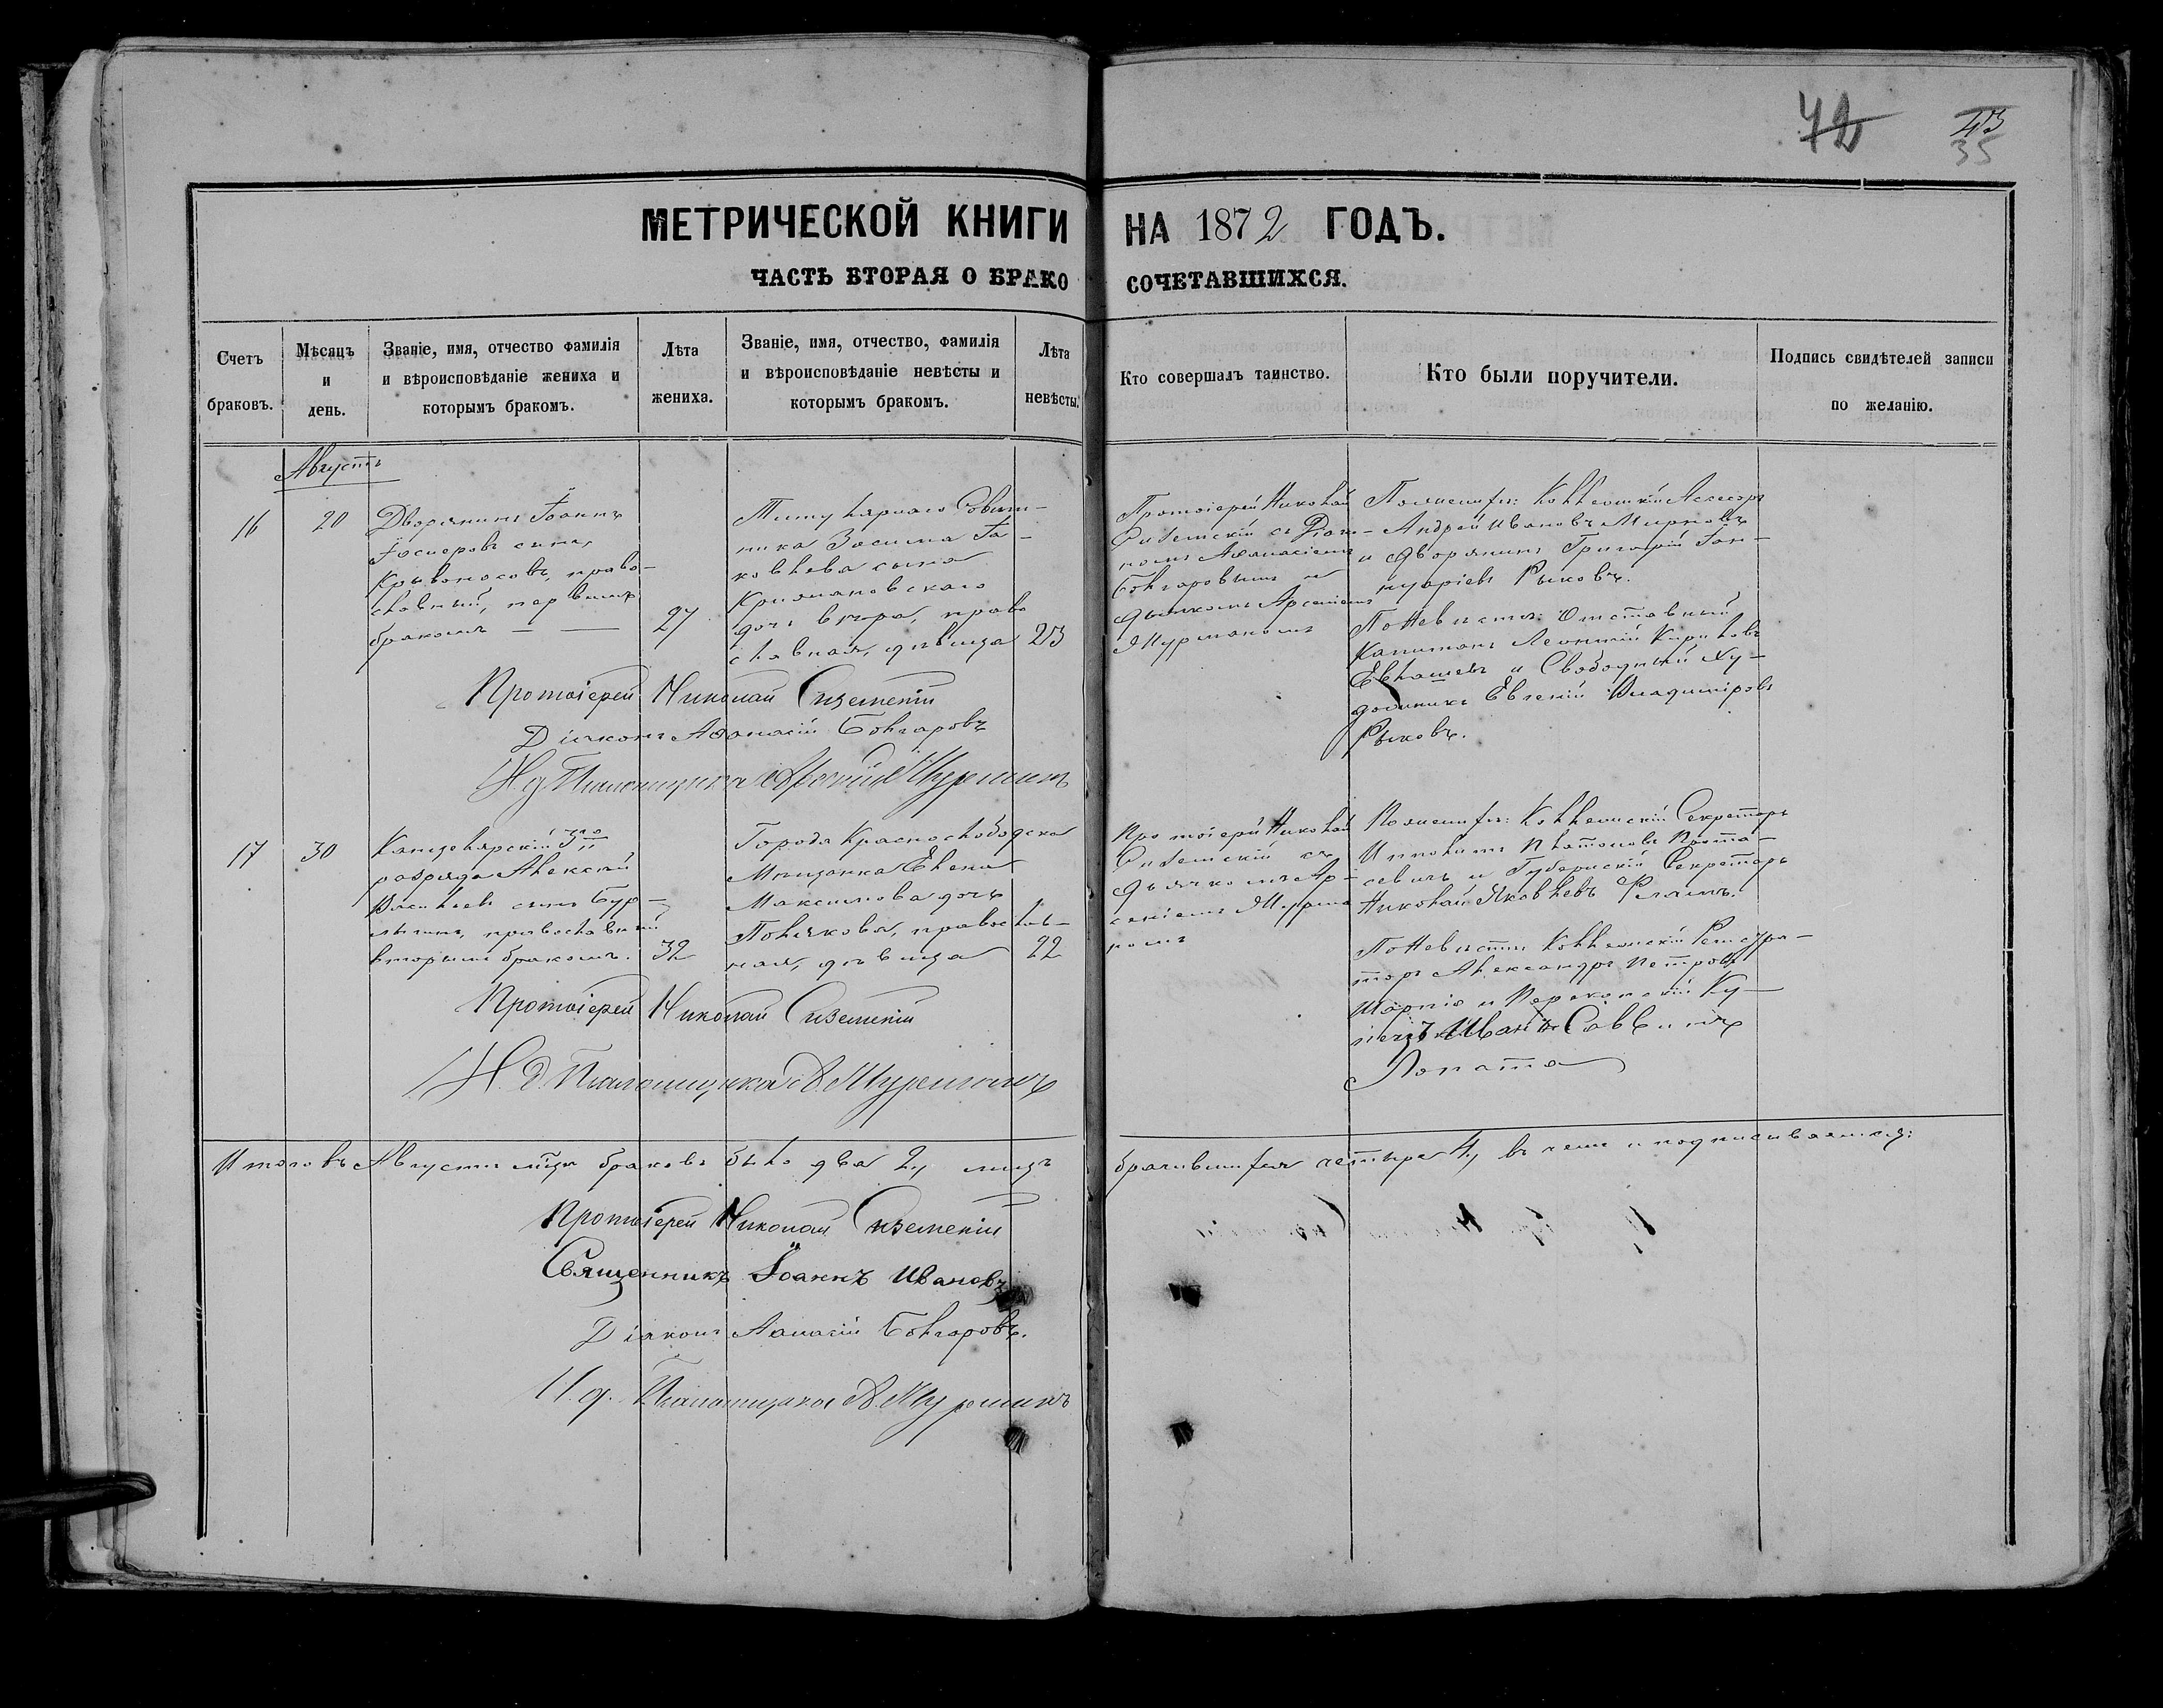 42 43
35
МЕТРИЧЕСКОЙ КНИГИ НА 1872 ГОДЪ.
ЧАСТЬ ВТОРАЯ О БРАКО СОЧЕТАВШИХСЯ.
Счетъ браковъ.
Мѣсяцъ и день.
Званіе, имя, отчество фамилія
и вѣроисповѣданіе жениха и
которымъ бракомъ.
Лѣта жениха.
Званіе, имя, отчество, фамилія
и вѣроисповѣданіе невѣсты и
которымъ бракомъ.
Лѣта невѣсты.
Кто совершалъ таинство.
Кто были поручители.
Подпись свидѣтелей записи
по желанію.
Августъ
16
20
Дворянинъ Іоаннъ
Іосифовъ сынъ
Кривоносовъ, право-
славный, первымъ
бракомъ — —
27
Титулярнаго Совѣт-
ника Зосима Іа-
ковлева сына
дочь вѣра, право
славная, дѣвица
23
Протоіерей Николай
съ Діако-
номъ Аѳанасіемъ
Болгаровымъ и
дьячкомъ Арсеніемъ
Мурманомъ
По женихѣ: Коллежскій Асессоръ
Андрей Ивановъ Мирновъ
и Дворянинъ Григорій Іан-
нуаріевъ Рыковъ.
По Невѣстѣ: Отставный
Капитанъ Леонтій Кириловъ
Евлашевъ и Свободный Ху-
дожникъ Евгеній Владиміровъ
Рыковъ.
Протоіерей Николай
Діаконъ Аѳанасій Болгаровъ
И. д. Псаломщика Арсеній Мурманъ
17
30
Канцелярскій 3го
разряда Алексѣй
Васильевъ сынъ Бур-
православный
вторымъ бракомъ.
32
Города Краснослободска
Мѣщанка Елена
Максимова дочь
Полякова, православ-
ная, дѣвица
22
Протоіерей Николай
съ
дьячкомъ Ар-
сеніемъ Мурма
номъ
По женихѣ: Коллежскій Секретарь
Ипполитъ Платоновъ
и Губернскій Секретарь
Николай Яковлевъ
По Невѣстѣ Коллежскій Регистра-
торъ Александръ Петровъ
и Перекопскій Ку-
пецъ Иванъ Саввинъ
Лопата
Протоіерей Николай
И. д. Псаломщика А. Мурманъ
Итого въ Августѣ мцѣ браковъ было два 2, лицъ брачившихся четыре 4, въ чемъ и подписываемся:
Протоіерей Николай
Священникъ Іоаннъ Ивановъ
Діаконъ Аѳанасій Болгаровъ.
И. д. Псаломщика А. Мурманъ